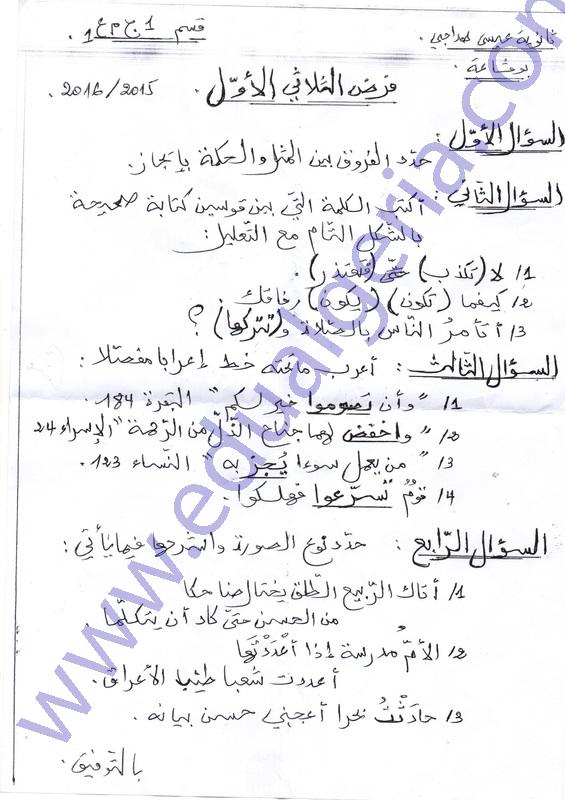 ثانوية عيسى هداجي
قسم 1 ج م ع 1 .
بوقاعة .
فرض الثلاثي الأوّل . 2016/2015 .
السؤال الأوّل :
حدّد الفروق بين المثل والحكمة بإيجاز .
السؤال الثاني : أكتب الكلمة التي بين قوسين كتابة صحيحة
بالشّكل التّام مع التّعليل :
1/ لا (تكذب) حتّى (تعتذر) .
2/ كيفما (تكون) (يكون) رفاقك .
3/ أتأمرُ النّاس بالصّلاة و(تتركها) ؟
السؤال الثّالث : أعرب ما تحته خط إعرابا مفصّلا :
1/ "وأن تصوموا خير لكم" البقرة 184 .
2/ "واخفض لهما جناح الذّلّ من الرّحمة" الإسراء 24
3/ "من يعمل سوءا يُجزَ به" النّساء 123 .
4/ قومٌ تسرّعوا فهلكوا .
السؤال الرّابع : حدّد نوع الصورة واشرحها فيما يأتي :
1/ أتاك الرّبيع الطّلق يختال ضاحكا
من الحسن حتّى كاد أن يتكلّما .
2/ الأمّ مدرسة إذا أعْدَدْتَها
أعددت شعبا طيّب الأعراق .
3/ حادَثْتُ بحرا أعجبني حسن بيانه .
بالتّوفيق .
www.edualgeria.com